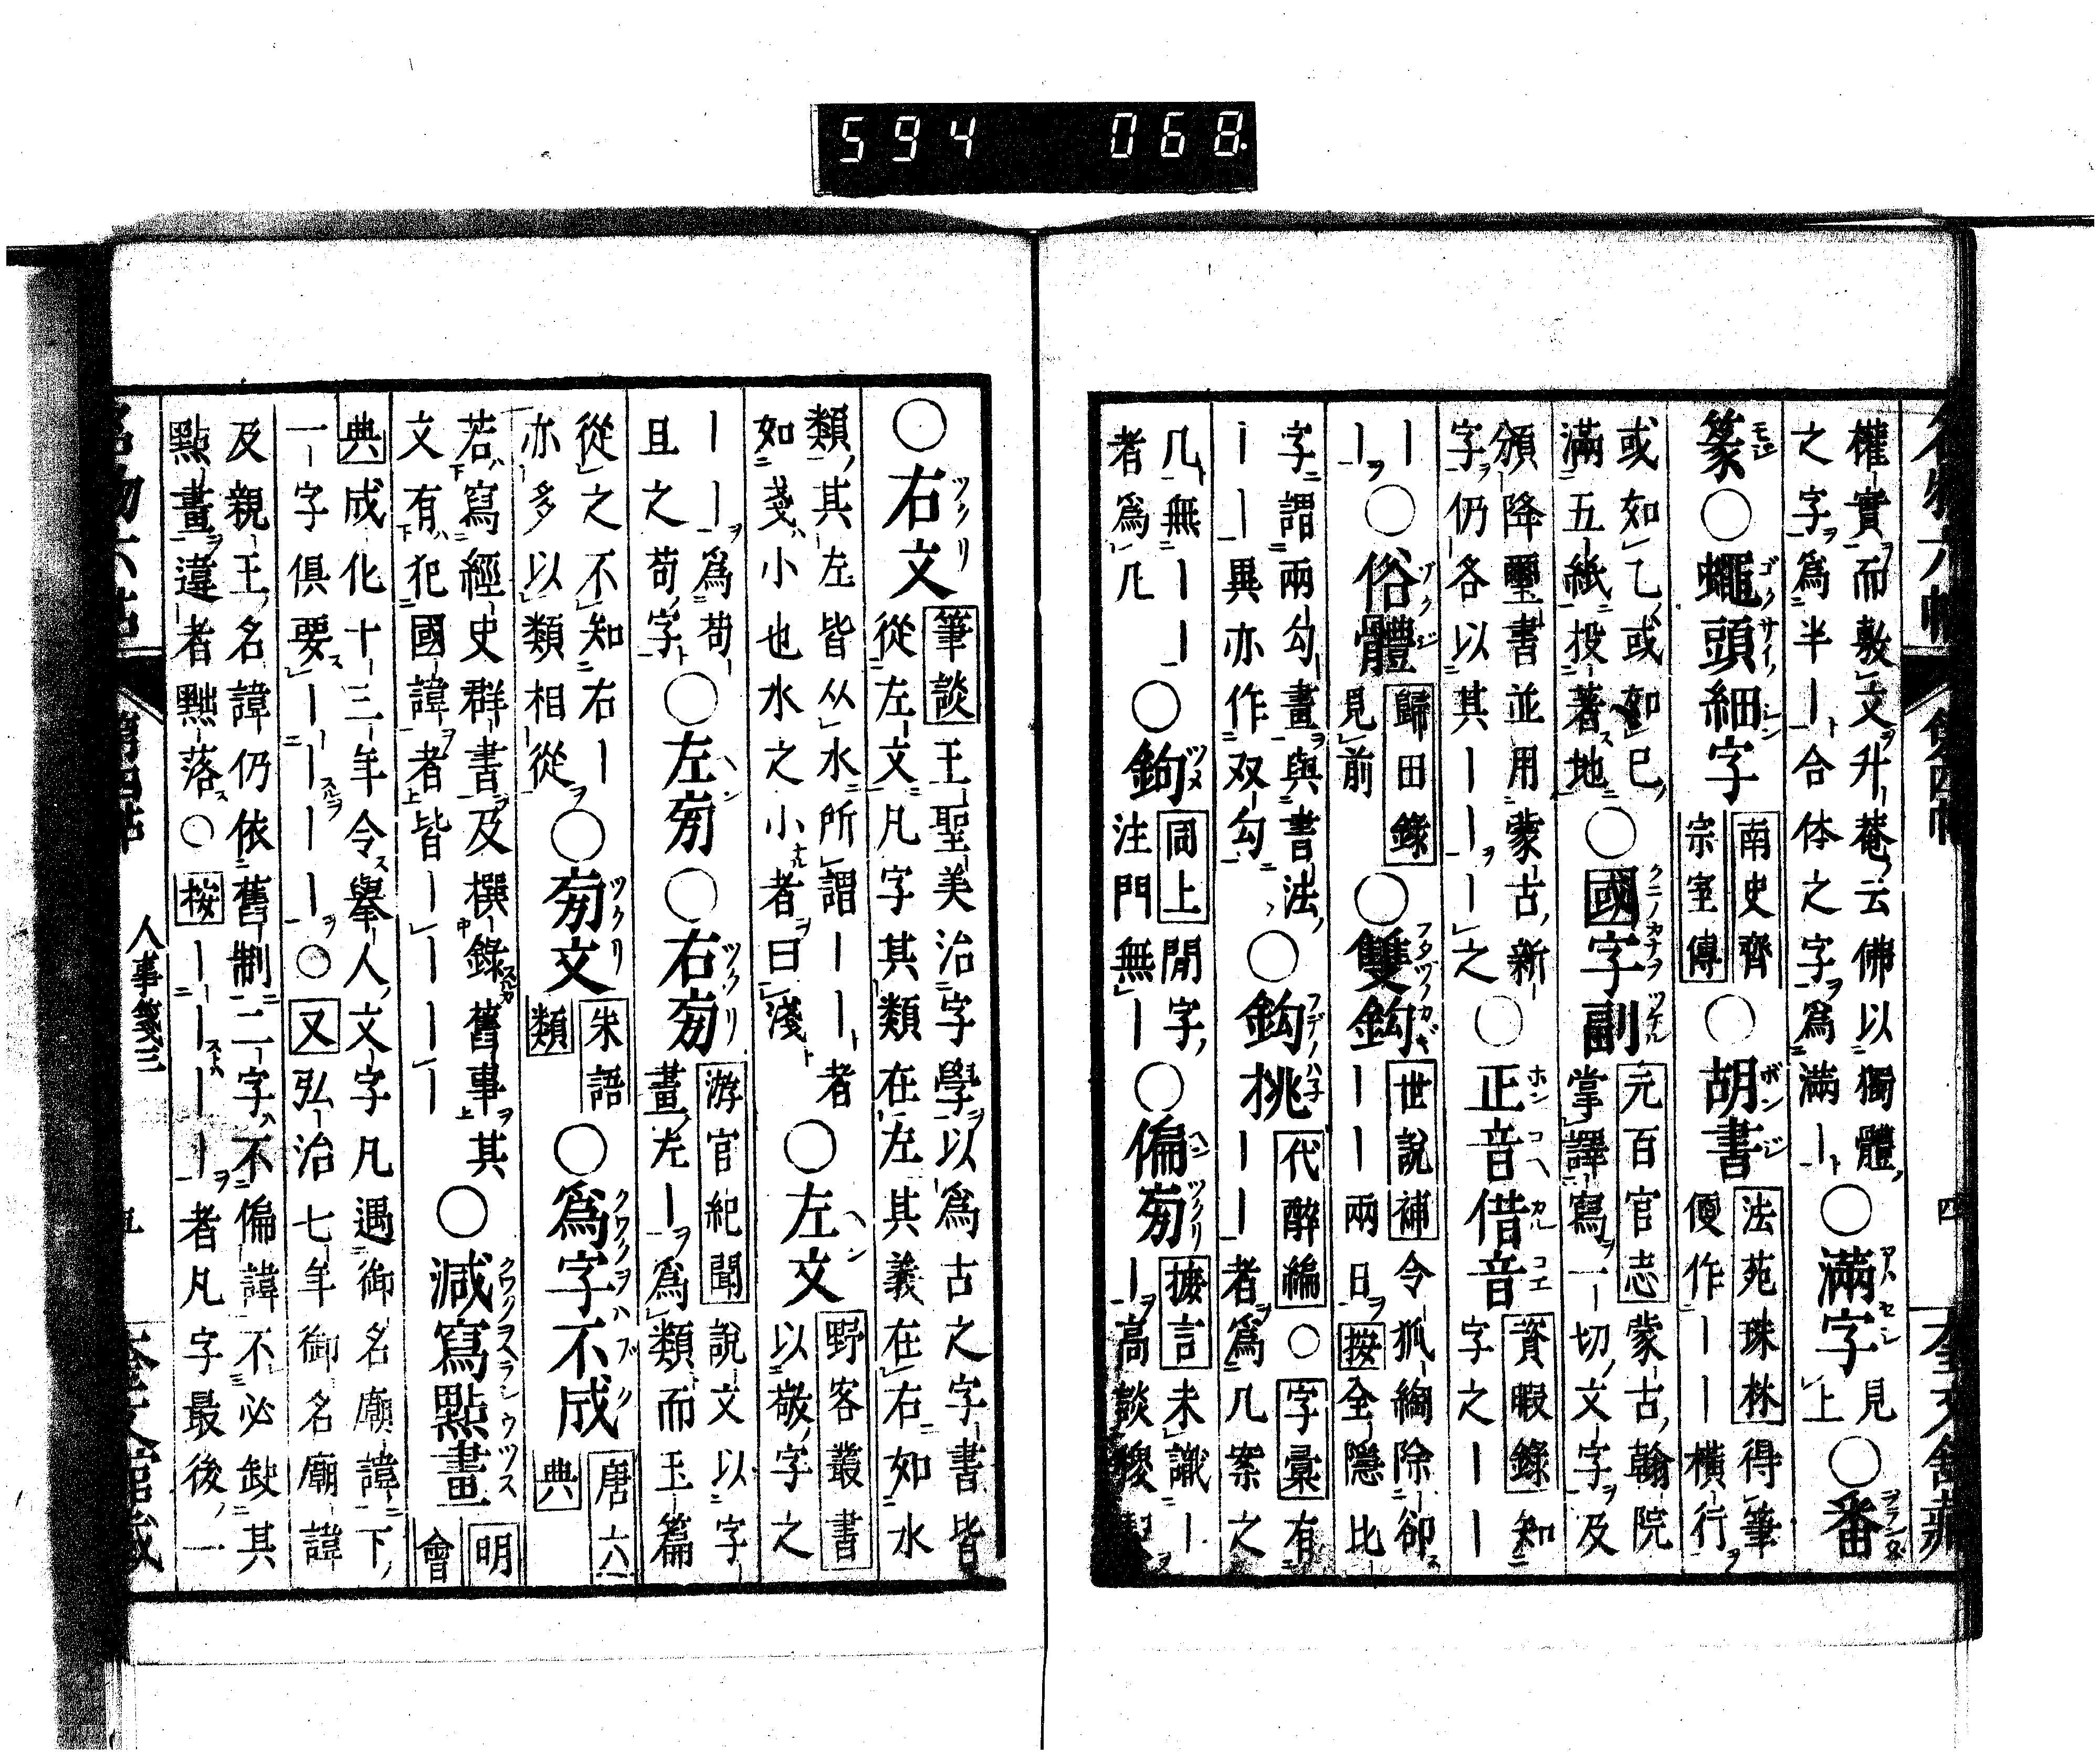 594 068
權實而敷文升菴云佛以獨體
之字爲半ー合体之字爲滿ー
○滿字 見上
○番
篆
○蠅頭細字 南史齊宗室傳
○胡書 法苑珠林 得筆
便作ーー橫行
或如乙或如已
滿五紙投著地
○國字副 元百官志 蒙古翰院
掌譯寫一切文字及
頒降璽書並用蒙古新
字仍各以其ーーー之
○正音借音 資暇錄 知
字之ーー
ーー
○俗體 歸田錄 見前
○雙鈎 世說補 令狐綯除卻
ーー兩日 按 全隱比
字謂兩勾畫與書法
ーー異亦作双勾
○鈎挑 代醉編 ○字彙 有
ーー者爲几案之
几無ーー
者爲几
○鉤 同上 閒字
注門無ー
○偏旁 摭言 未識ー
ー高談稷
○右文 筆談 王聖美治字學以爲古之字書皆
從左文凡字其類在左其義在右如水
類其左皆从水所謂ーー者
如戔小也水之小者曰淺
○左文 野客叢書
以敬字之
ーー爲苟
且之苟字
○左旁
○右旁 游官紀聞 說文以字
畫左ー爲類而玉篇
從之不知右ー
亦多以類相從
○旁文 朱語類
○爲字不成 唐六典
若寫經史群書及撰錄舊事其
文有犯國諱者皆ーーーー
○減寫點畫 明會
典 成化十三年令舉人文字凡遇御名廟諱下
一字俱要ーーーー ○又 弘治七年御名廟諱
及親王名諱仍依舊制二字不偏諱不必缺其
點畫違者黜落 ○按 ーーーー者凡字最後一
人事箋三